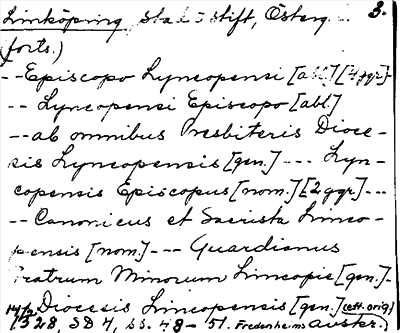 Linköping stad o stift, Österg. 3.
(forts.)
-- Episcopo Lyncopensi [abl.] [4 ggr] -
-- Lyncopensi Episcopo [abl.]
-- ab omnibus Presbiteris Dioce-
sis Lyncopensis [gen.] --- Lyn-
copensis Episcopus [nom.] [2 ggr] ---
-- Canonicus et Sacrista Linco-
pensis [nom.] --- Guardianus
Fratrum Minorum Lincopie [gen.] -
- Diocesis Lincopensis [gen.] (eft. orig.)
14/2 1328, SD 4, ss. 48-51. Fredenheims avskr.)